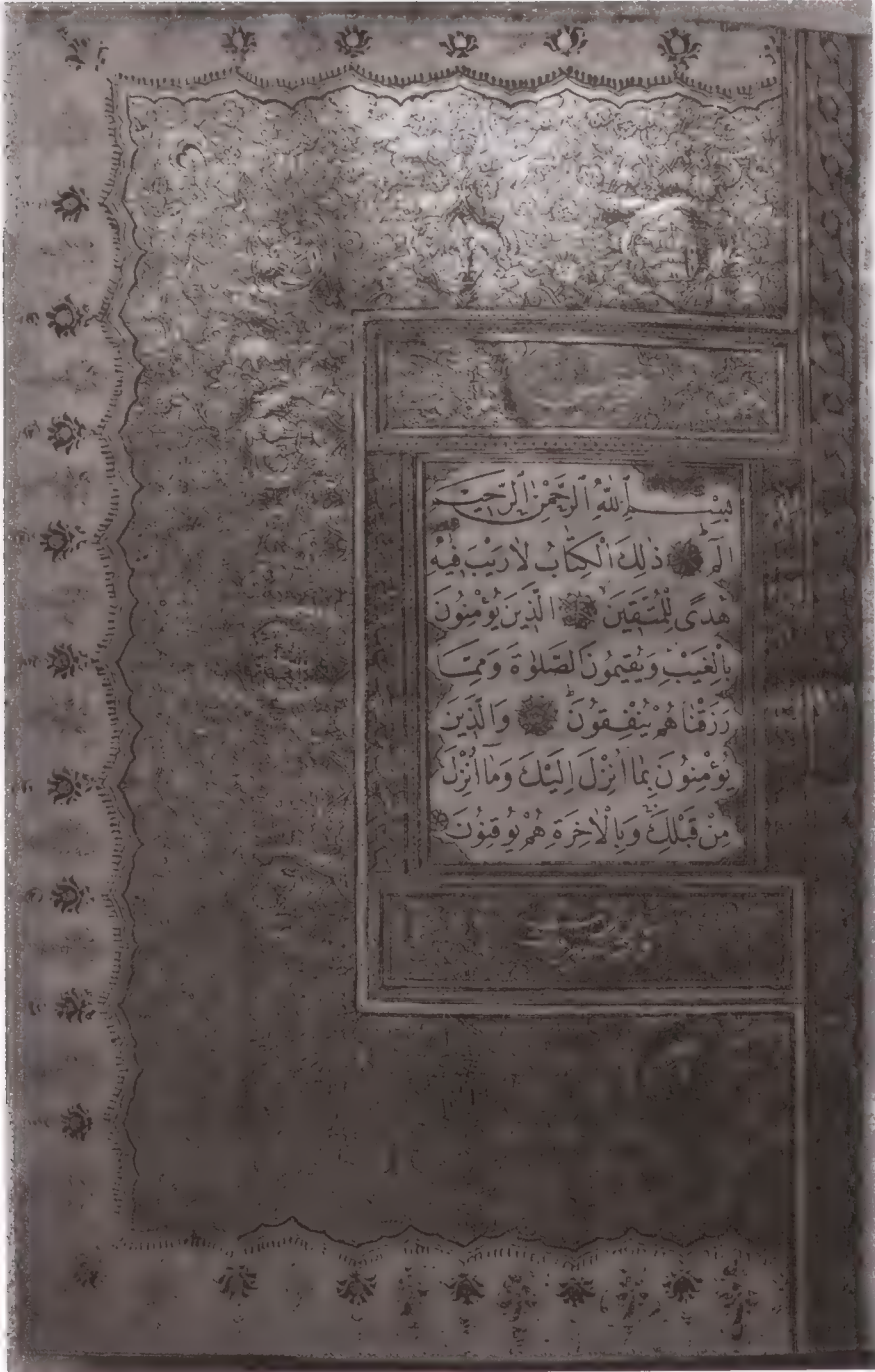 بِسْمِ اللّٰهِ الرَّحْمٰنِ الرَّحِيمِ
الٓمٓ ذٰلِكَ الْكِتَابُ لَا رَيْبَ فِيهِ
هُدًى لِلْمُتَّقِينَ الَّذِينَ يُؤْمِنُونَ
بِالْغَيْبِ وَيُقِيمُونَ الصَّلٰوةَ وَمِمَّا
رَزَقْنَاهُمْ يُنْفِقُونَ وَالَّذِينَ
يُؤْمِنُونَ بِمَا اُنْزِلَ اِلَيْكَ وَمَا اُنْزِلَ
مِنْ قَبْلِكَ وَبِالْاٰخِرَةِ هُمْ يُوقِنُونَ